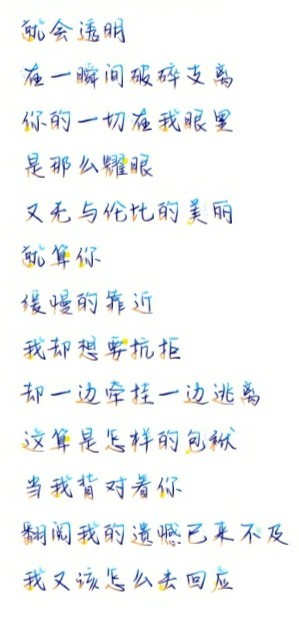 就会透明
在一瞬间破碎支离
你的一切在我眼里
是那么耀眼
又无与伦比的美丽
就算你
缓慢的靠近
我却想要抗拒
却一边牵挂一边逃离
这算是怎样的包袱
当我背对着你
翻阅我的遗憾已来不及
我又该怎么去回应